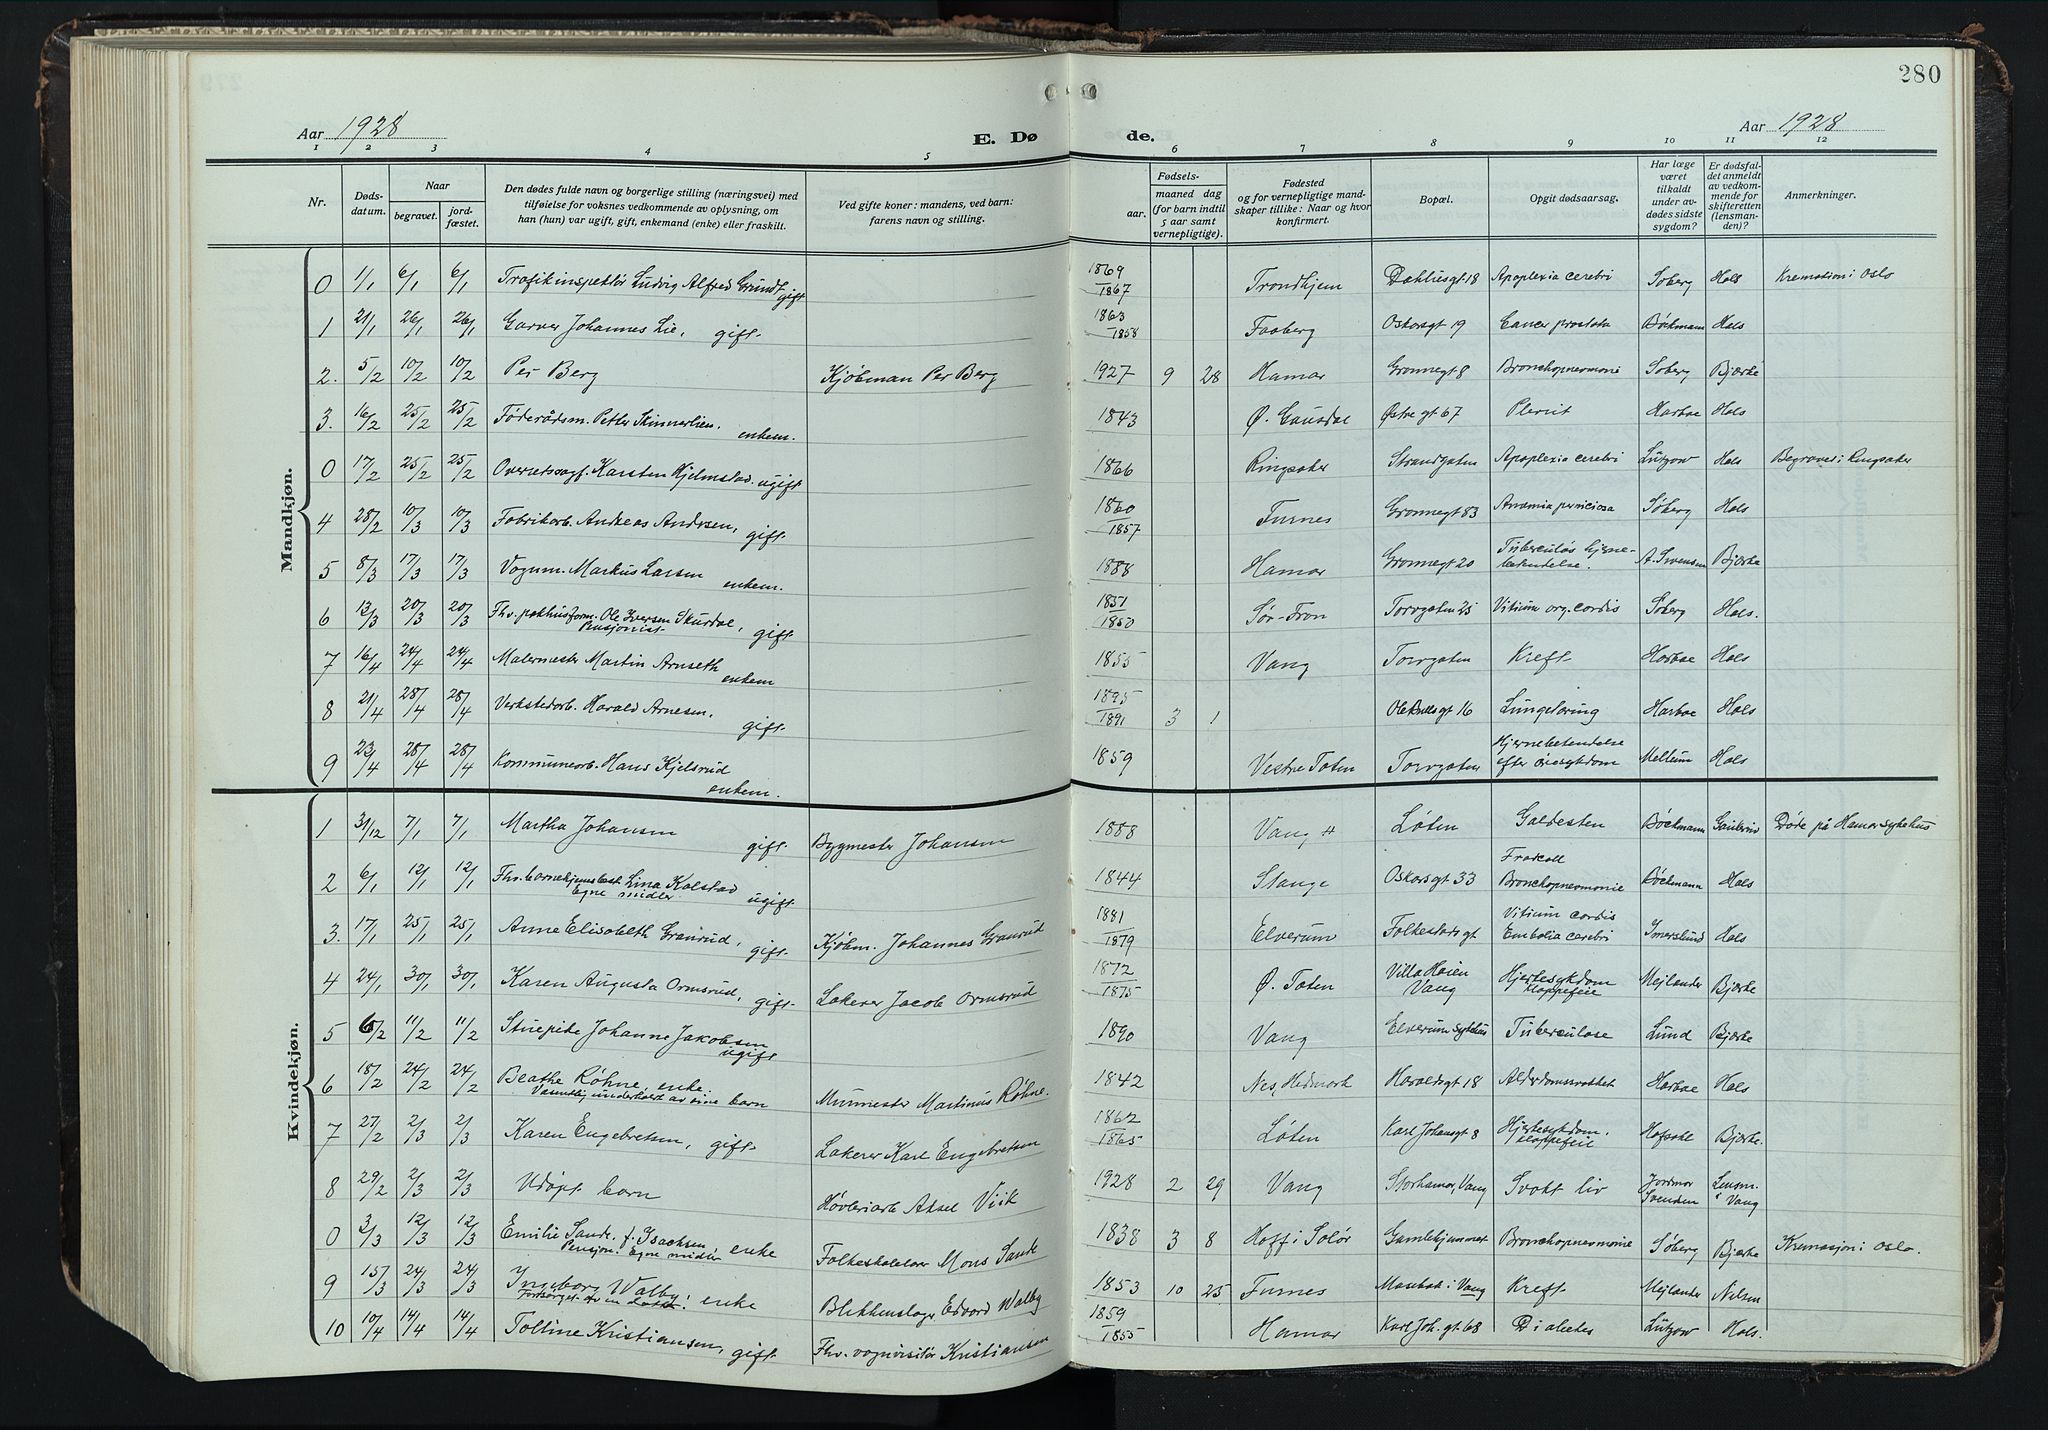 280
Aar 1928 E. Dø de. Aar 1928
1 2 3 4 5 6 7 8 9 10 11 12
Nr. Døds-datum. Naar begravet. jord-fæstet. Den dødes fulde navn og borgerlige stilling (næringsvei) med tilføielse for voksnes vedkommende av oplysning, om han (hun) var ugift, gift, enkemand (enke) eller fraskilt. Ved gifte koner: mandens, ved barn: farens navn og stilling. Fødsels- aar. maaned dag (for barn indtil 5 aar samt vernepligtige). Fødested og for vernepligtige mand-skaper tillike: Naar og hvor konfirmert. Bopæl. Opgit dødsaarsag. Har læge været tilkaldt under av-dødes sidste sygdom? Er dødsfal-det anmeldt av vedkom-mende for skifteretten (lensman-den)? Anmerkninger.
Mandkjøn.
0 1/1 6/1 6/1 Trafikinspektør Ludvig Alfred Grundt, gift 1869 1867 Trondhjem Dæhlusgt 18 Apoplexia cerebri Søberg Hols Kremation i Oslo
1 21/1 26/1 26/1 Garver Johannes Lie, gift. 1863 1858 Faaberg Oskarsgt 19 Cancer prostata Böckmann Hols
2. 5/2 10/2 10/2 Per Berg Kjøbman Per Berg 1927 9 28 Hamar Grønnegt 8 Bronchopneumonie Søberg Bjerke
3. 16/2 25/2 25/2 Føderådsm. Petter Skinnerlien, enkem. 1843 Ø. Gausdal Østre gt 67 Plevrit Harboe Hols
0 17/2 25/2 25/2 Overretssagf. Karsten Hjelmstad. ugift 1866 Ringsaker Strandgaten Apoplexia cerebri Lützow Hols Begravet i Ringsaker
4 28/2 10/3 10/3 Fabrikarb. Andreas Andersen, gift. 1860 1857 Furnes Grønnegt 83 Anæmia perniciosa Søberg Hols
5 8/3 17/3 17/3 Vognm. Markus Larsen enkem. 1888 Hamar Grønnegt 20 Tuberculøs hjerne-betendelse. A. Svensen Bjerke
6 13/3 20/3 20/3 Fhv. pakhusform. Ole Iversen Skurdal, Pensjonist gift. 1851 1850 Sør-Fron Torvgaten 25 Vitium org. cordis Søberg Hols.
7 16/4 24/4 24/4 Malermester Martin Arnseth enkem 1855 Vang Torvgaten Kreft Harboe Hols
8 21/4 28/4 28/4 Verkstedarb. Harald Arnesen, gift. 1895 1891 3 1 Ole Bullsgt 16 Harboe Hols
9 23/4 28/4 28/4 Kommunearb. Hans Kjelsrud enkem. 1859 Vestre Toten Torvgaten Hjernebetendelse efter øresykdom Mellum Hols
Kvindekjøn.
1 31/12 7/1 7/1 Martha Johansen gift. Bygmester Johansen 1888 Vang H Løten Galdesten Böckmann Døde på Hamar sykehus
2 6/1 12/1 12/1 Fhv. barnehjemsbest. Lina Kolstad Egne midler. ugift 1844 Stange Oskarsgt 33 Bronchopneumonie Böckmann Hols
3. 17/1 25/1 25/1 Anne Elisabeth Granrud, gift. Kjøbm. Johannes Granrud 1881 1879 Elverum Folkestadsgt Vitium cordis Embolia cerebri Imerslund Hols
4 24/1 30/1 30/1 Karen Augusta Ormsrud, gift. Lakerer Jacob Ormsrud 1872 1875 Ø. Toten Villa Høien Vang Hjertesykdom klappefeil Mejlænder Bjerke
5 6/2 11/2 11/2 Stuepike Johanne Jakobsen ugift 1890 Vang Elverum sykehus Tuberculose Lund Bjerke
6 18/2 24/2 24/2 Beathe Røhne, enke. Væsentlig underholdt av sine barn Murmester Martinus Røhne. 1842 Nes, Hedmark Haraldsgt 18 Alderdomssvakhet Harboe Hols
7 27/2 2/3 2/3 Karen Engebretsen, gift. Lakerer Karl Engebretsen 1862 1865 Løten Karl Johansgt 8 Hjertesykdom. klappefeil Hofdahl Bjerke.
8 29/2 2/3 2/3 Udøpt barn Høvleriarb Aksel Viik 1928 2 29 Vang Storhamar, Vang Svakt liv Jordmor Svendsen Lensm. i Vang
0 3/3 12/3 12/3 Emilie Sande f. Isachsen Pensjon. Egne midler enke Folkeskolelærer Mons Sande 1838 3 8 Hoff i Solør Gamlehjemmet Bronchopneumonie Søberg Bjerke Kremasjon i Oslo.
9 15/3 24/3 24/3 Ingeborg Walby: Forsørget av en datter. enke Blikkenslager Edvard Walby 1853 10 25 Furnes Vang Kreft Mejlænder Nilsen
10 10/4 14/4 14/4 Tolline Kristiansen, gift. Fhv. vognvisitør Kristiansen 1859 1855 Hamar Karl Joh. gt 68 Diabetes Lützow Hols.